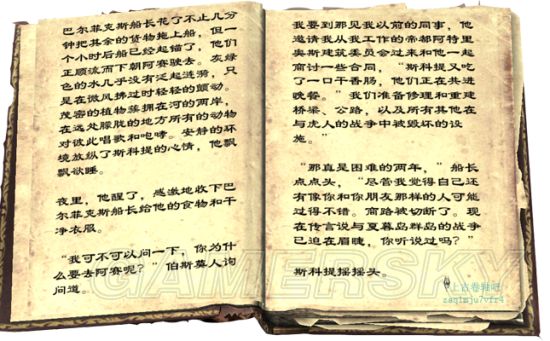 巴尔菲克斯船长花了不止几分
钟把其余的货物拖上船，但一
个小时后船已经起锚了，他们
正顺流而下朝阿赛驶去。灰绿
色的水几乎没有泛起涟漪，只
是在微风拂过时轻轻的颤动。
茂密的植物簇拥在河的两岸，
在远处朦胧的地方所有的动物
对彼此唱歌和咆哮。安静的环
境放纵了斯科提的心情，他飘
飘欲睡。
夜里，他醒了，感激地收下巴
尔菲克斯船长给他的食物和干
净衣服。
“我可不可以问一下，你为什
么要去阿赛呢？”伯斯莫人询
问道。
我要到那见我以前的同事，他
邀请我从我工作的帝都阿特里
奥斯建筑委员会过来和他一起
商讨一些合同，”斯科提又吃
了一口干香肠，他们正在共进
晚餐。”我们准备修理和重建
桥梁、公路，以及所有其他在
与虎人的战争中被毁坏的设
施。”
“那真是困难的两年，”船长
点点头，“尽管我觉得自己还
有像你和你朋友那样的人可能
过得不错。商路被切断了。现
在传言说与夏暮岛群岛的战争
已迫在眉睫，你听说过吗？”
斯科提摇摇头。
GAMERSKY
上古卷轴吧
zaq1mju7vfr4